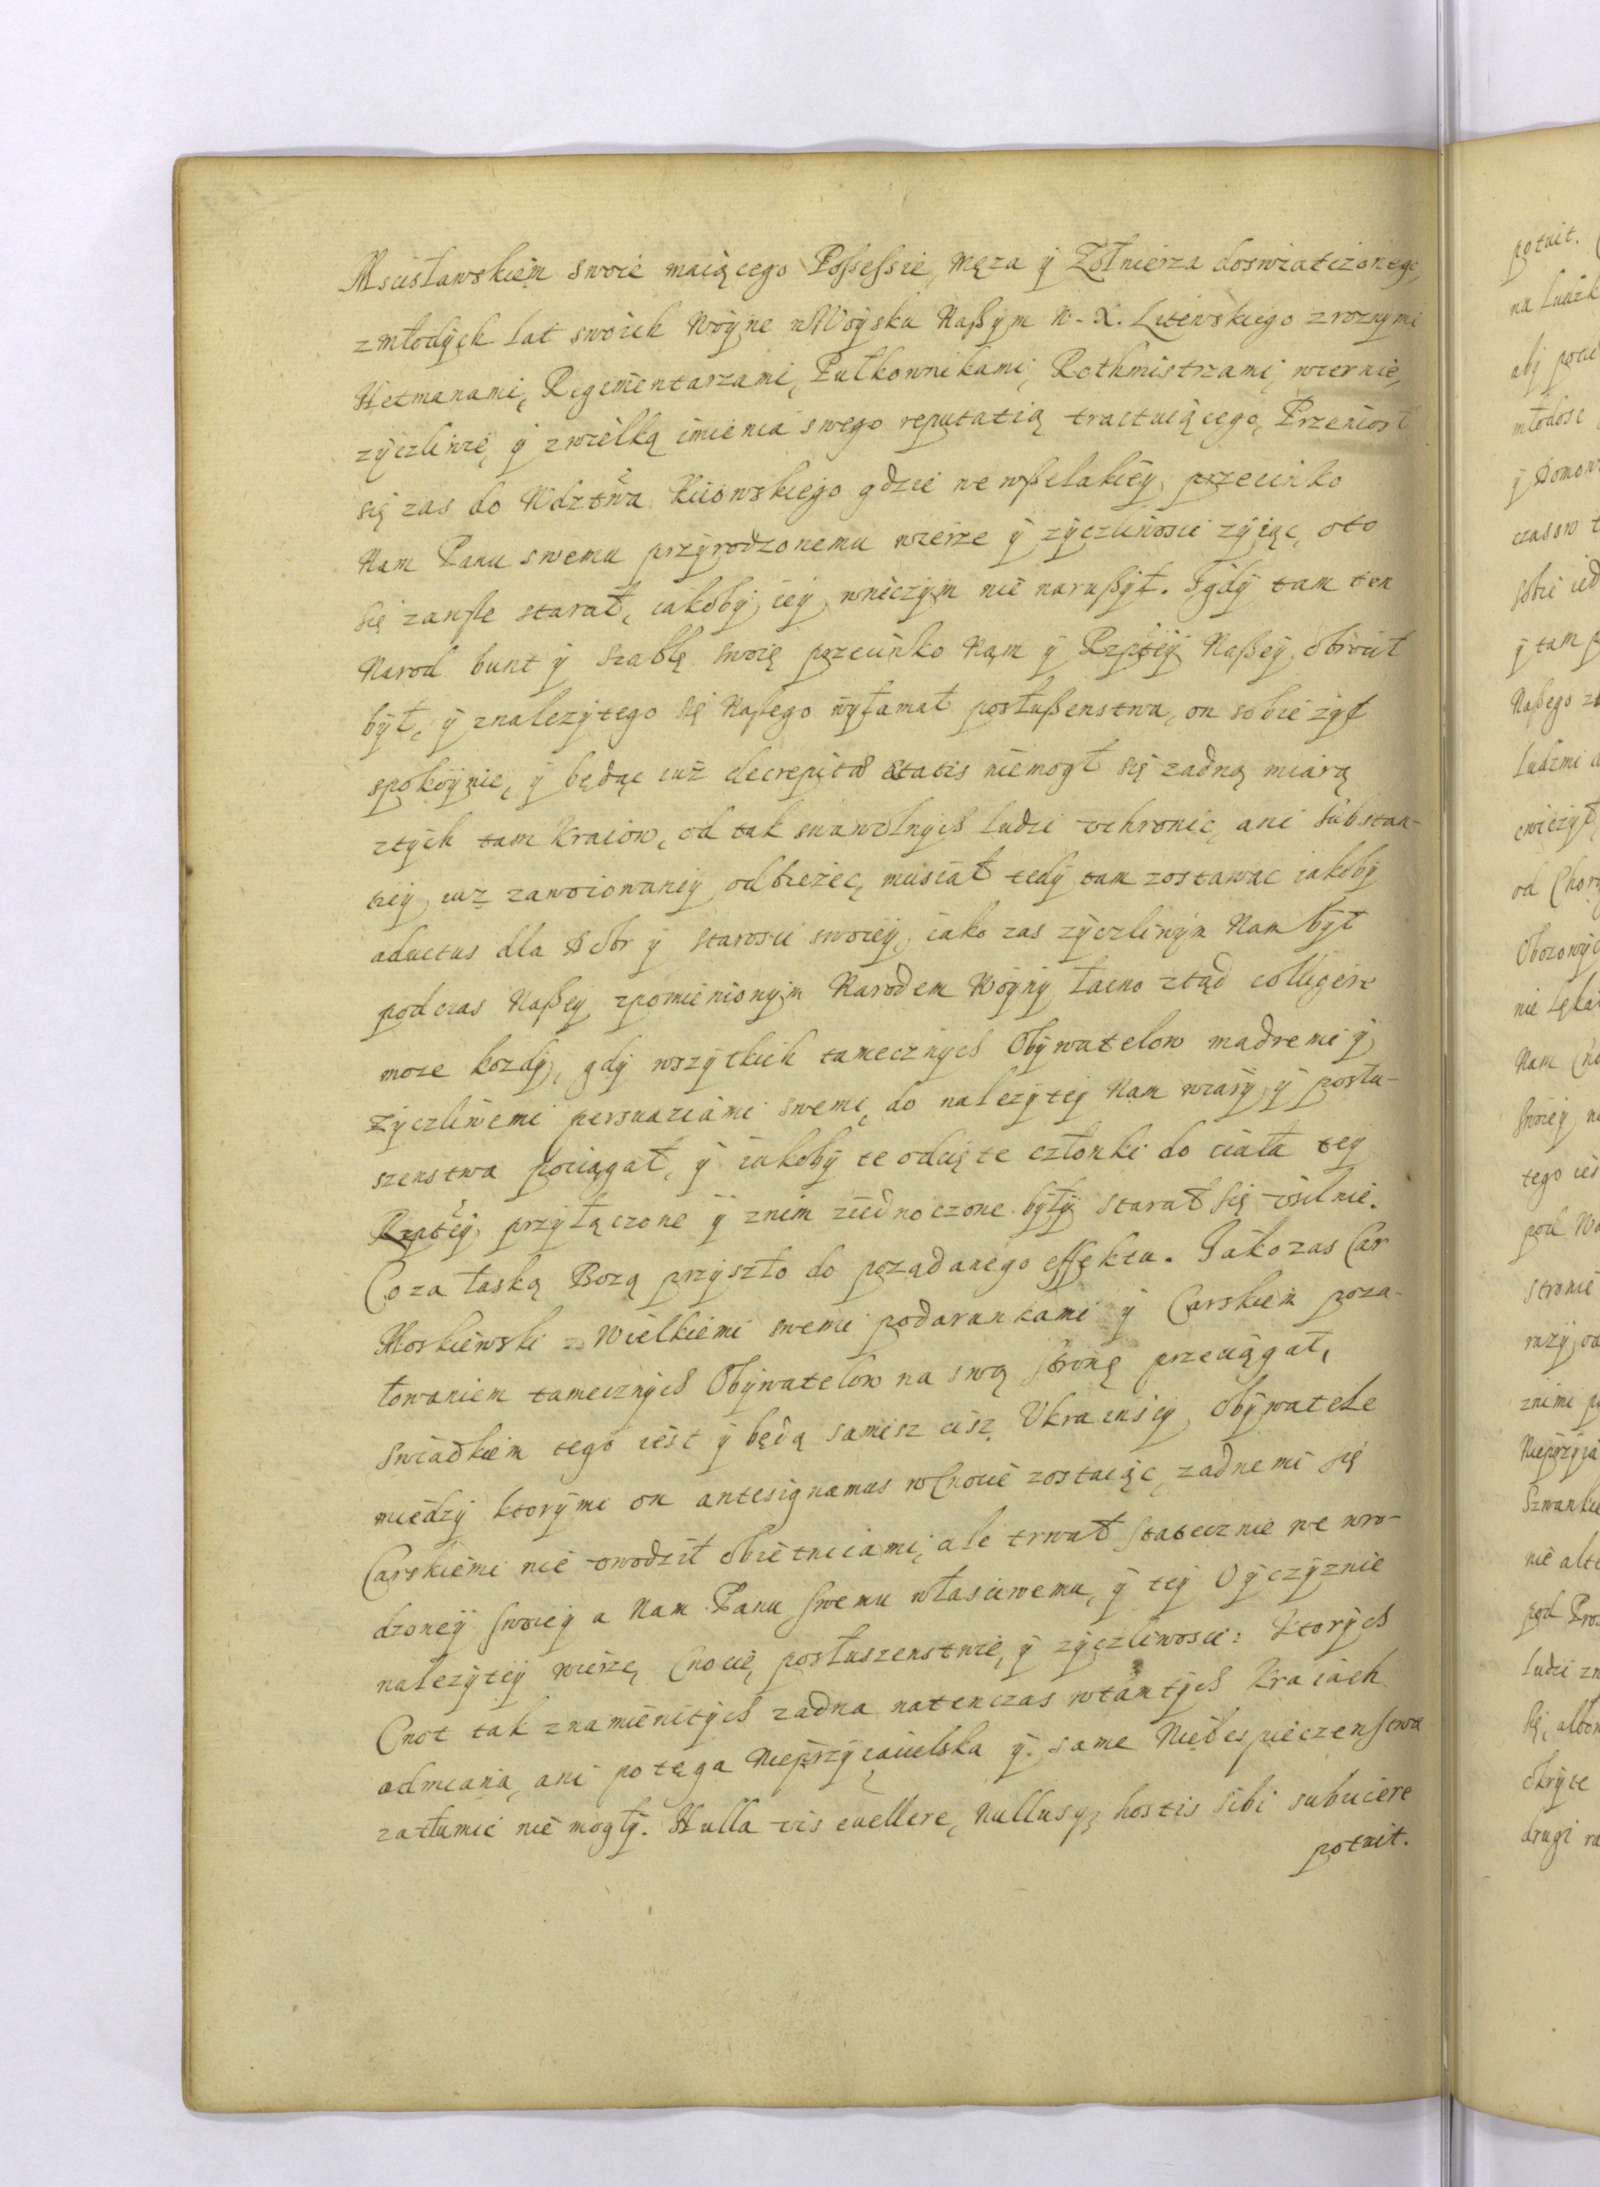 Mscisławskiem swoie maiącego Possessie, męza ÿ Zołnierza doswiatczonego
z młodÿch lat swoich Woÿne w Woÿsku Naszÿm W. X. Litewskiego z roznÿmi
Hetmanami, Regimentarzami, Pułkownikami, Rothmistrzami, wiernie,
zÿczliwie, ÿ z wielką imienia swego reputatią tractuiącego, Przeniosł
się zas do Wdztwa Kiiowskiego gdzie we wszelakiey przeciwko
Nam Panu swemu przÿrodzonemu wierze ÿ zÿczliwosci zÿiąc, o to
się zawsze starał, iakobÿ iey wniczÿm nie naruszÿł. I gdÿ tam ten
Narod bunt ÿ szablę swoię przeciwko Nam ÿ Rzptey Naszeÿ obrocił
bÿł, ÿ z nalezÿtego się Naszego wÿłamał posłuszenstwa, on sobie zÿł
spokoÿnie, ÿ będąc iuż decrepitæ ætatis niemogł się zadną miarą
z tÿch tam kraiow, od tak swawolnÿch ludzi vchronic, ani substan-
tiey iuz zawoiowaney odbiezec, musiał tedÿ tam zostawac iakobÿ
aductus dla dobr ÿ starosci swoiey, iako zas zÿczliwÿm Nam bÿł
podczas Naszeÿ zpomienionÿm Narodem Woÿnÿ łacno ztąd colligere
moze kozdÿ, gdÿ wszÿtkich tamecznÿch Obÿwatelow mądremi ÿ
zÿczliwemi persuaziami swemi, do nalezÿteÿ Nam wiarÿ ÿ posłu-
szenstwa pociągał, ÿ iakobÿ te odcięte członki do ciała teÿ
Rzptey przÿłączone ÿ znim ziednoczone bÿłÿ starał się vsilnie.
Co za łaską Bozą przÿszło do poządanego effektu. Jako zas Car
Moskiewski z Wielkiemi swemi podarunkami ÿ Carskiem poza-
łowaniem tamecznÿch Obÿwatelow na swą stronę przeciągał,
swiadkiem tego iest ÿ będą samisz cisz Vkrainscÿ Obÿwatele
międzÿ ktorÿmi on antesignanus w Cnocie zostaiąc, zadnemi się
Carskiemi nie vwodził obietnicami, ale trwał statecznie we wro-
dzoneÿ swoieÿ a Nam Panu swemu własciwemu, ÿ teÿ Oÿczÿznie
nalezÿteÿ wierze, Cnocie, posłuszenstwie, ÿ zÿczliwosci: Ktorÿch
Cnot tak znamienitÿch zadna natenczas wtamtÿch kraiach
odmiana, ani potęga Nieprzÿiacielska ÿ same Niebespieczenstwa
zatłumic nie mogłÿ. Nulla vis euellere, Nullusq; hostis sibi subiicere
potuit.